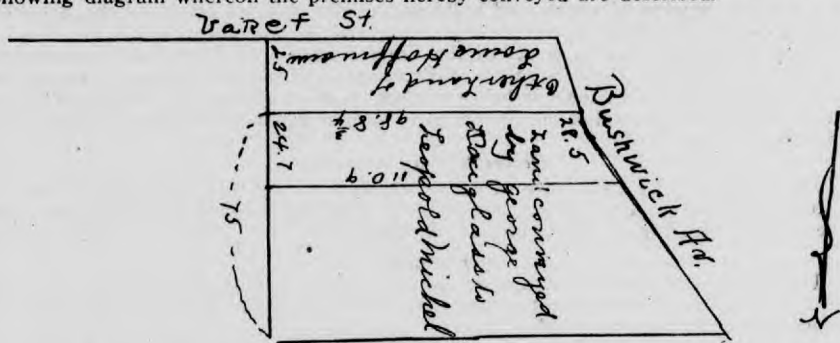 following diagram whereon the premises hereby conveyed are described
Varet St.
25
Other Land of
Louis Hoffmann
Bushwick Av.
28.5
98.8 1/4
24.7
110.9
75
Land conveyed
by George
Douglass to
Leopold Michel